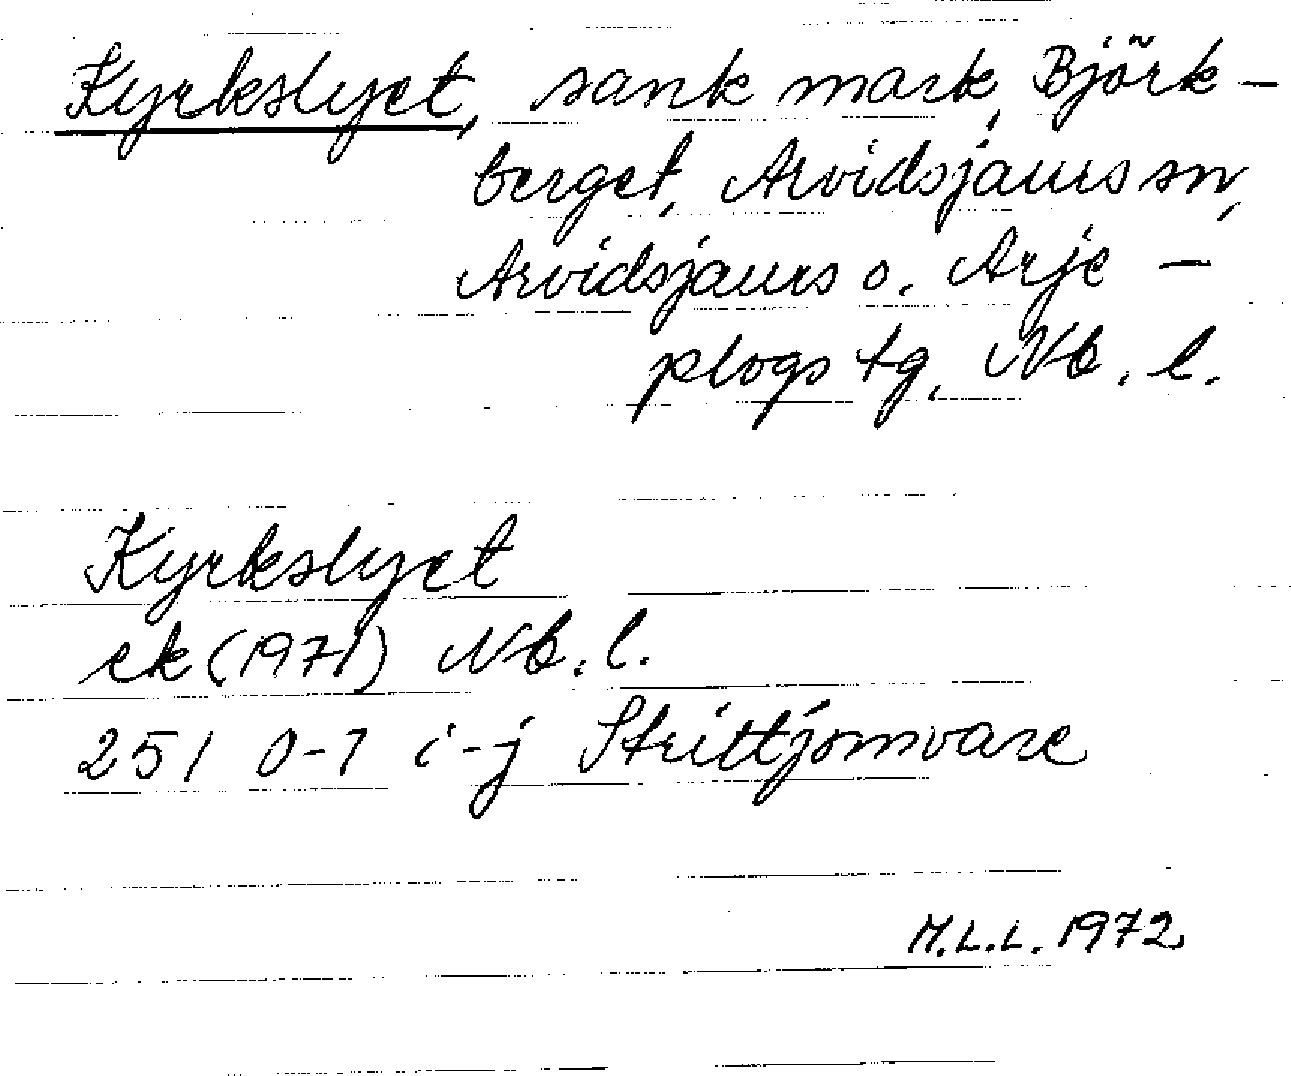 Kyrkslyet, sank mark, Björk-
berget, Arvidsjaurs sn,
Arvidsjaurs o. Arje-
plogs tg, Nb. l.
Kyrkslyet
ek (1971) Nb. l.
251 0-1 i-j Strittjomvare
M.L.L. 1972